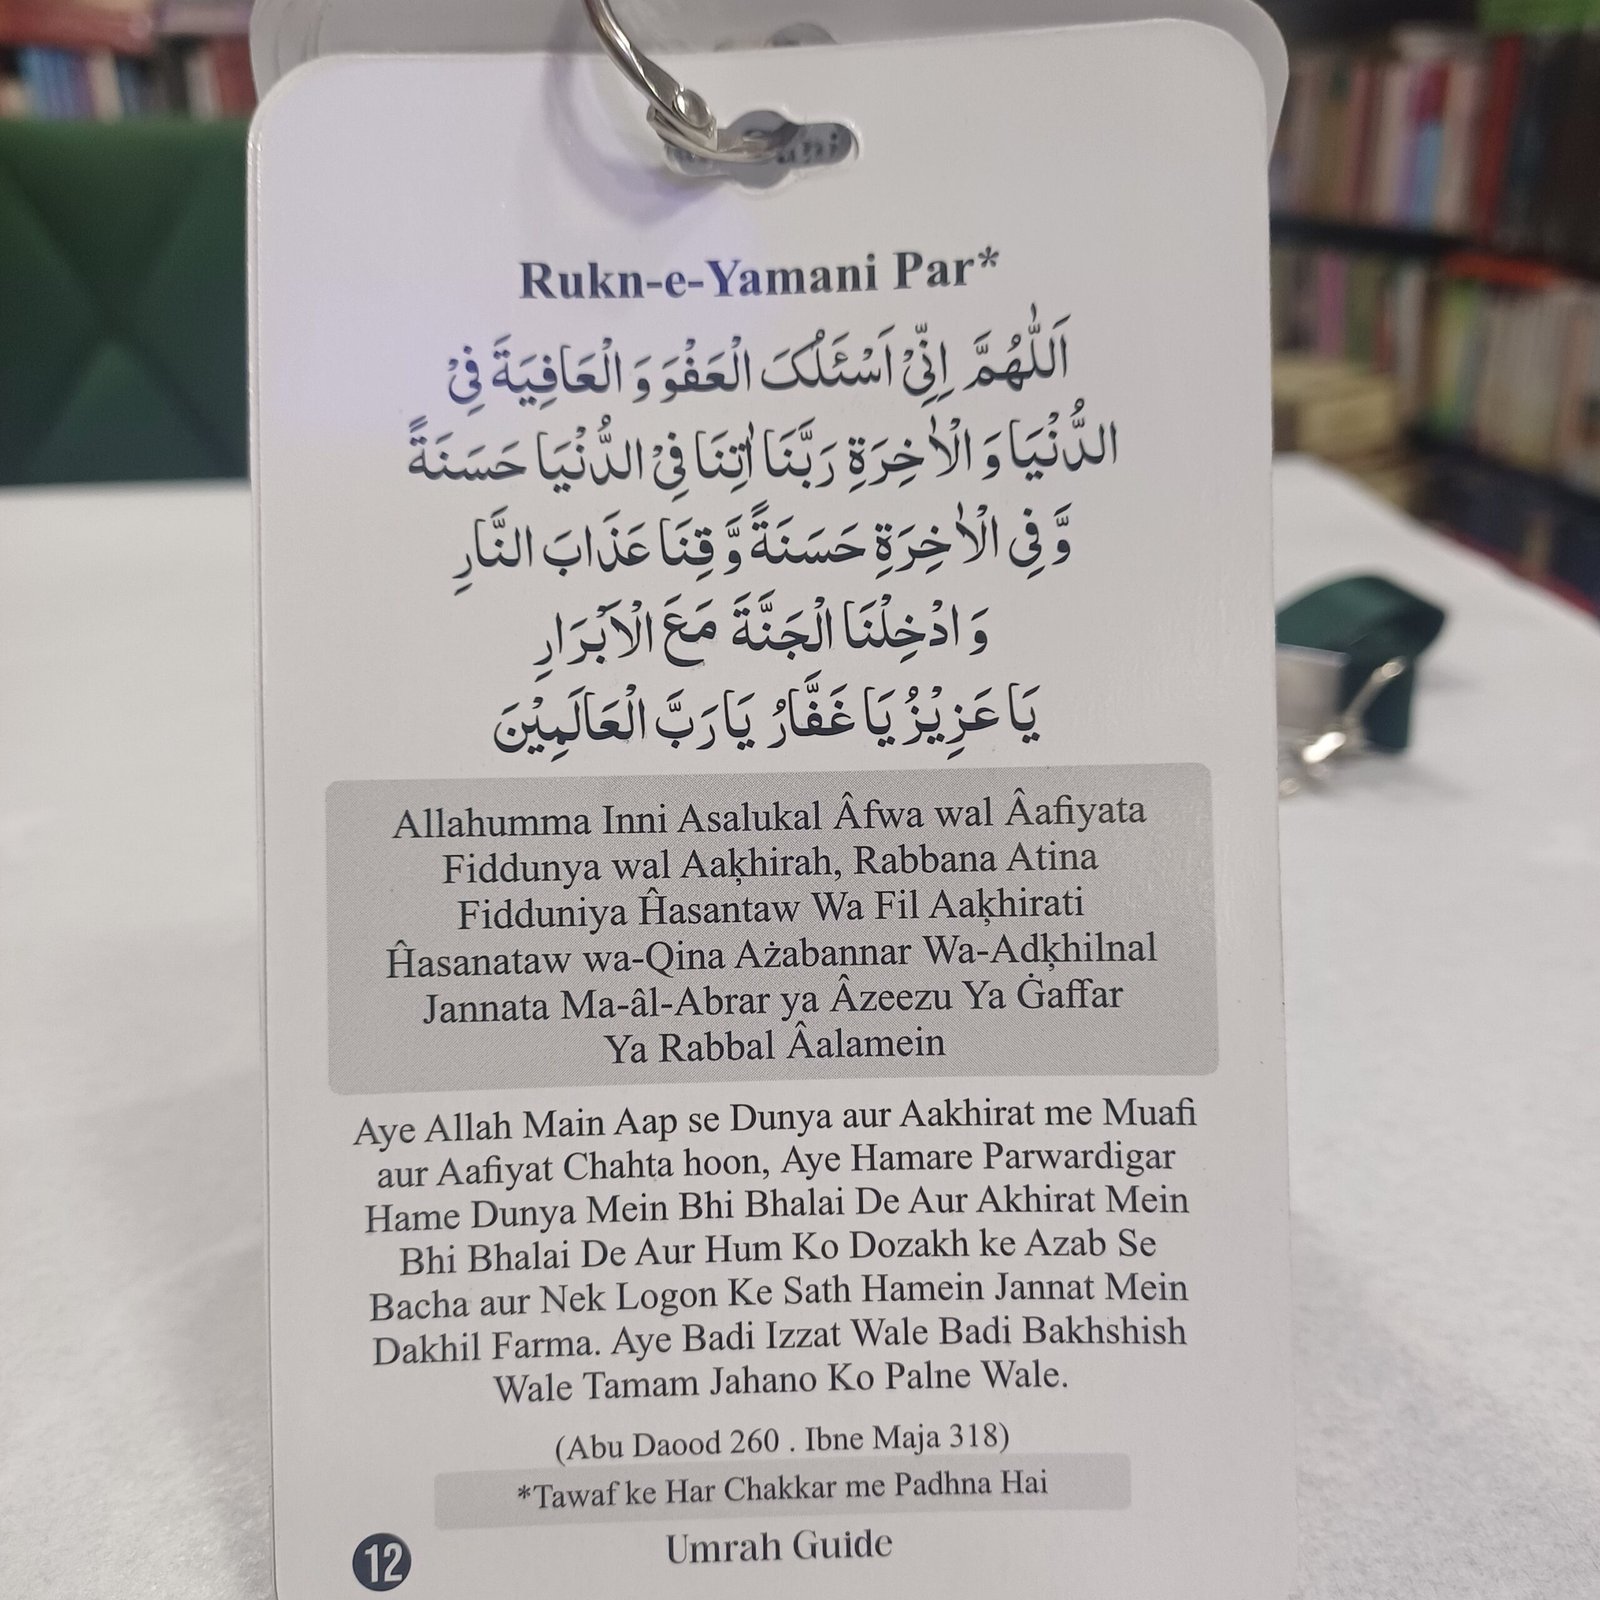 Rukn-e-Yamani Par*
اَللّٰهُمَّ اِنِّيْ اَسْئَلُكَ الْعَفْوَ وَ الْعَافِيَةَ فِيْ
الدُّنْيَا وَ الْاٰخِرَةِ رَبَّنَا اٰتِنَا فِيْ الدُّنْيَا حَسَنَةً
وَّ فِي الْاٰخِرَةِ حَسَنَةً وَّ قِنَا عَذَابَ النَّارِ
وَ ادْخِلْنَا الْجَنَّةَ مَعَ الْاَبْرَارِ
يَا عَزِيْزُ يَا غَفَّارُ يَا رَبَّ الْعَالَمِيْنَ
Allahumma Inni Asalukal Âfwa wal Âafiyata
Fiddunya wal Aaķhirah, Rabbana Atina
Fidduniya Ĥasantaw Wa Fil Aaķhirati
Ĥasanataw wa-Qina Ażabannar Wa-Adķhilnal
Jannata Ma-âl-Abrar ya Âzeezu Ya Ġaffar
Ya Rabbal Âalamein
Aye Allah Main Aap se Dunya aur Aakhirat me Muafi
aur Aafiyat Chahta hoon, Aye Hamare Parwardigar
Hame Dunya Mein Bhi Bhalai De Aur Akhirat Mein
Bhi Bhalai De Aur Hum Ko Dozakh ke Azab Se
Bacha aur Nek Logon Ke Sath Hamein Jannat Mein
Dakhil Farma. Aye Badi Izzat Wale Badi Bakhshish
Wale Tamam Jahano Ko Palne Wale.
(Abu Daood 260 . Ibne Maja 318)
*Tawaf ke Har Chakkar me Padhna Hai
12 Umrah Guide